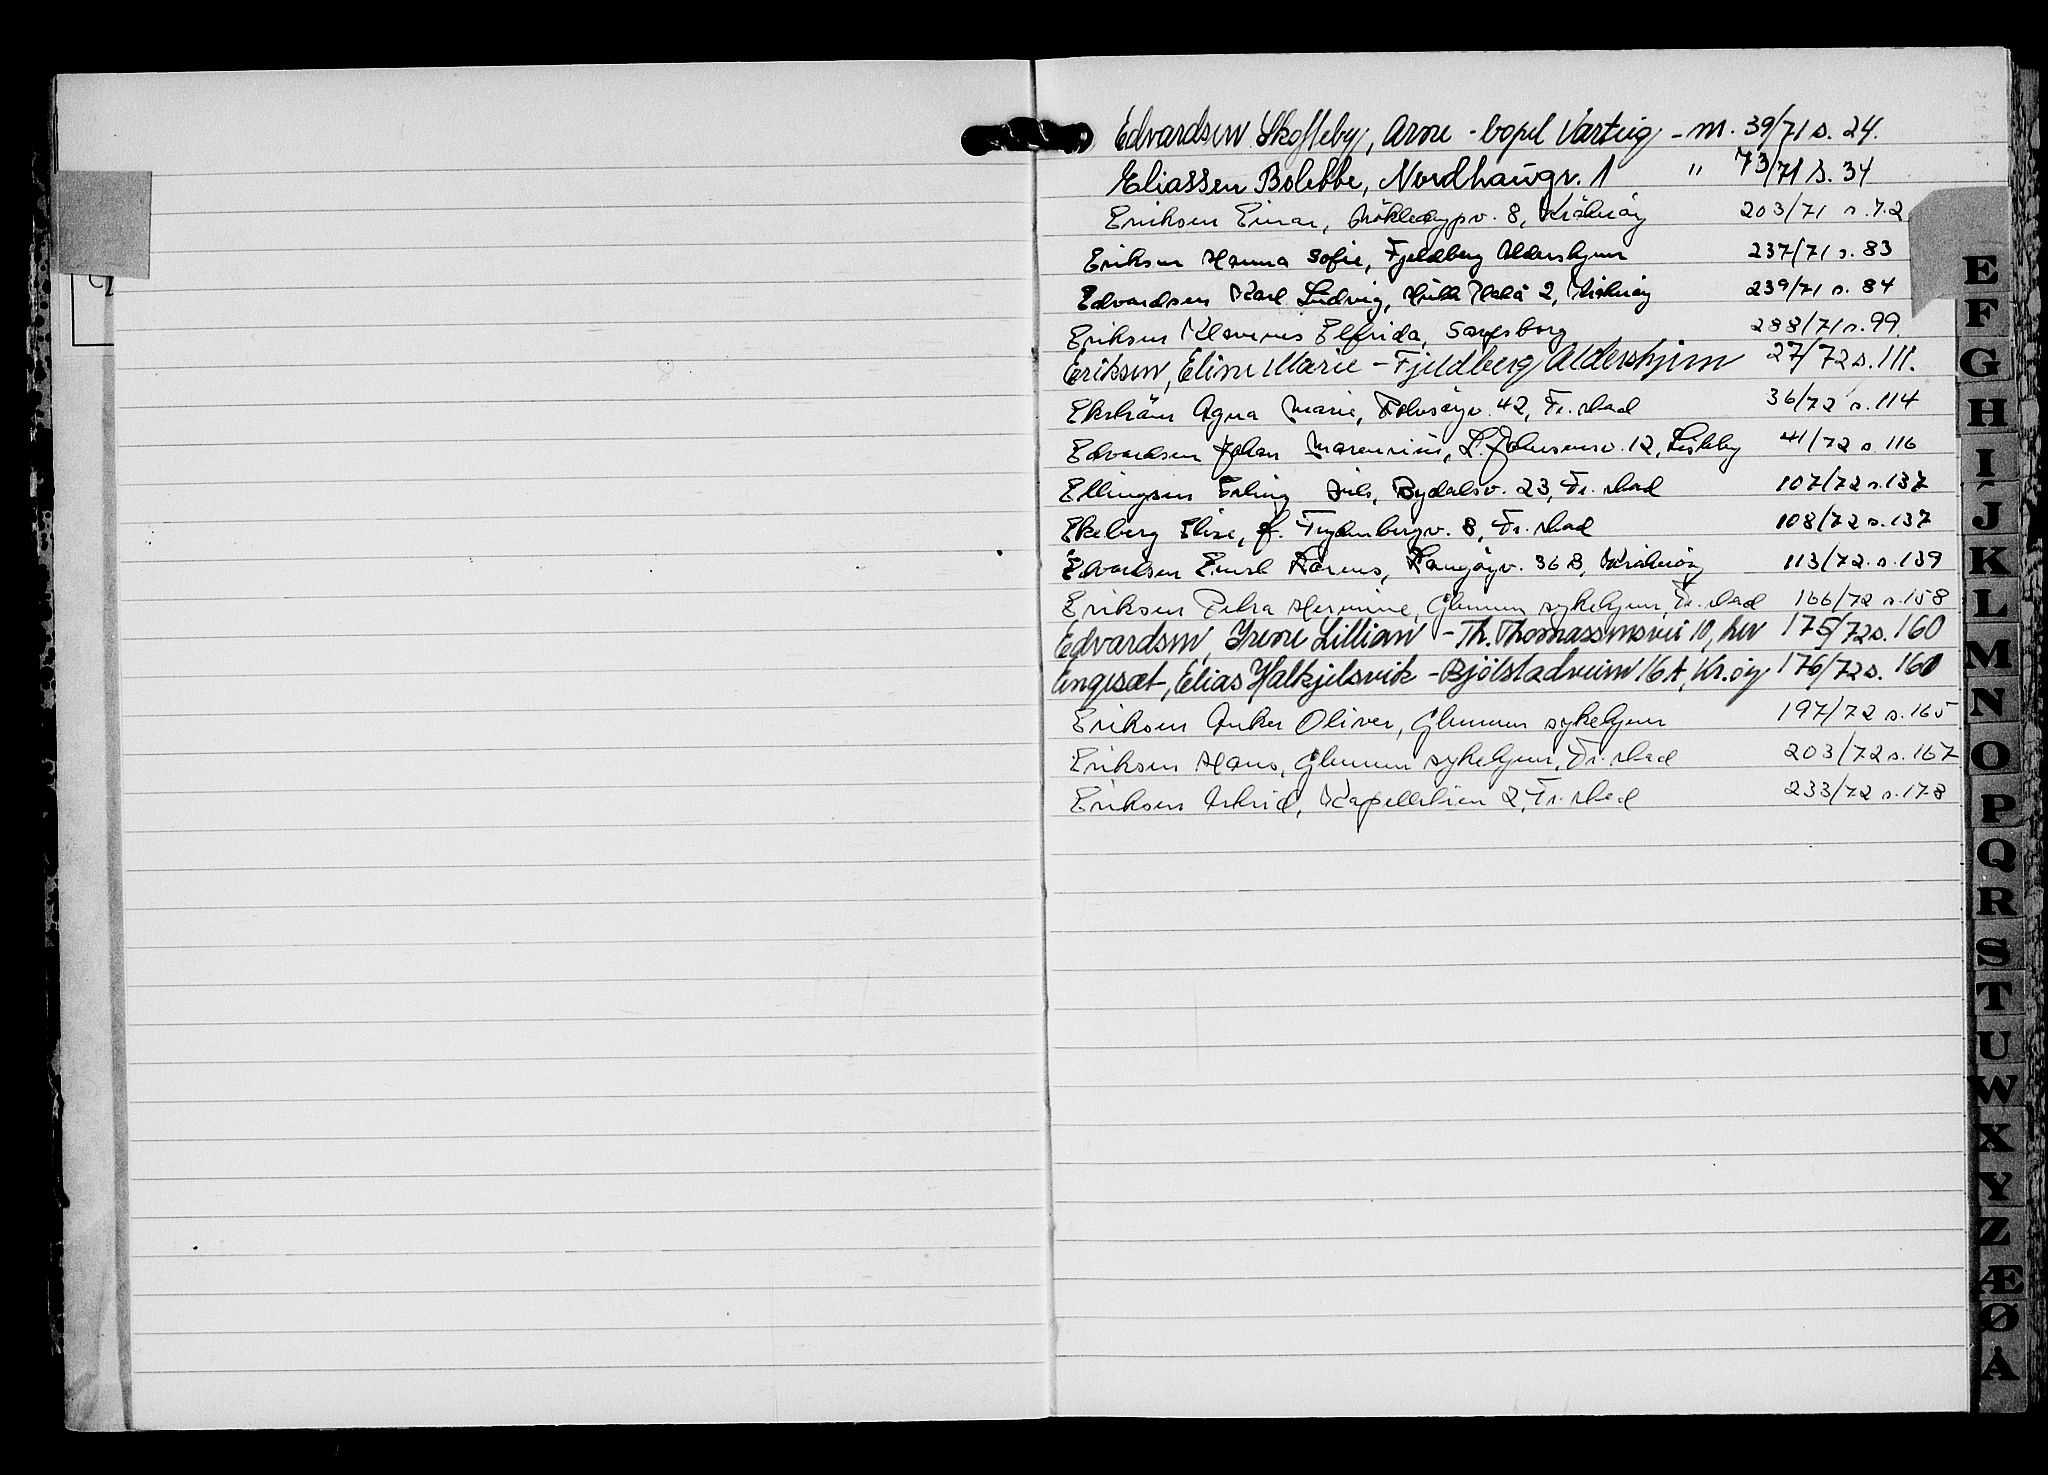 Edvardsen Skofteby, Arne - bopel Varteig - nr. 39/71 s. 24.
Eliassen Bolette, Nordhaugv. 1 " 73/71 s. 34
Eriksen Einar, 8, Kråkerøy 203/71 s. 72
Eriksen Hanna Sofie, Fjeldberg Aldershjem 237/71 s. 83
Edvardsen Karl Ludvig, 2, Kråkerøy 239/71 s. 84
Eriksen Elfrida, Sarpsborg 288/71 s. 99
Eriksen, Eline Marie - Fjeldberg Aldershjem 27/72 s. 111.
Agna Marie, 42, Fr.stad 36/72 s. 114
Edvardsen Johan L. Johnsensv. 12, Lisleby 41/72 s. 116
Ellingsen Erling Nils, Bydalsv. 23, Fr.stad 107/72 s. 137
Ekeberg Elise, Frydenbergv. 8, Fr.stad 108/72 s. 137
Edvardsen Langøyv. 36 B, Kråkerøy 113/72 s. 139
Eriksen Petra Hermine, Glemmen sykehjem, Fr.stad 166/72 s. 158
Edvardsen, Irene Lillian - Th. Thomassensvei 10, her 175/72 s. 160
Engeset, Elias Halkjelsvik - Bjølstadveien 16A, Kr.øy 176/72 s. 160
Eriksen Anker Oliver, Glemmen sykehjem 197/72 s. 165
Eriksen Hans, Glemmen sykehjem, Fr.stad 203/72 s. 167
Eriksen Astrid, Kapellelien 2, Fr.stad 233/72 s. 178
E
F
G
H
I
J
K
L
M
N
O
P
Q
R
S
T
U
W
X
Y
Z
Æ
Ø
Å